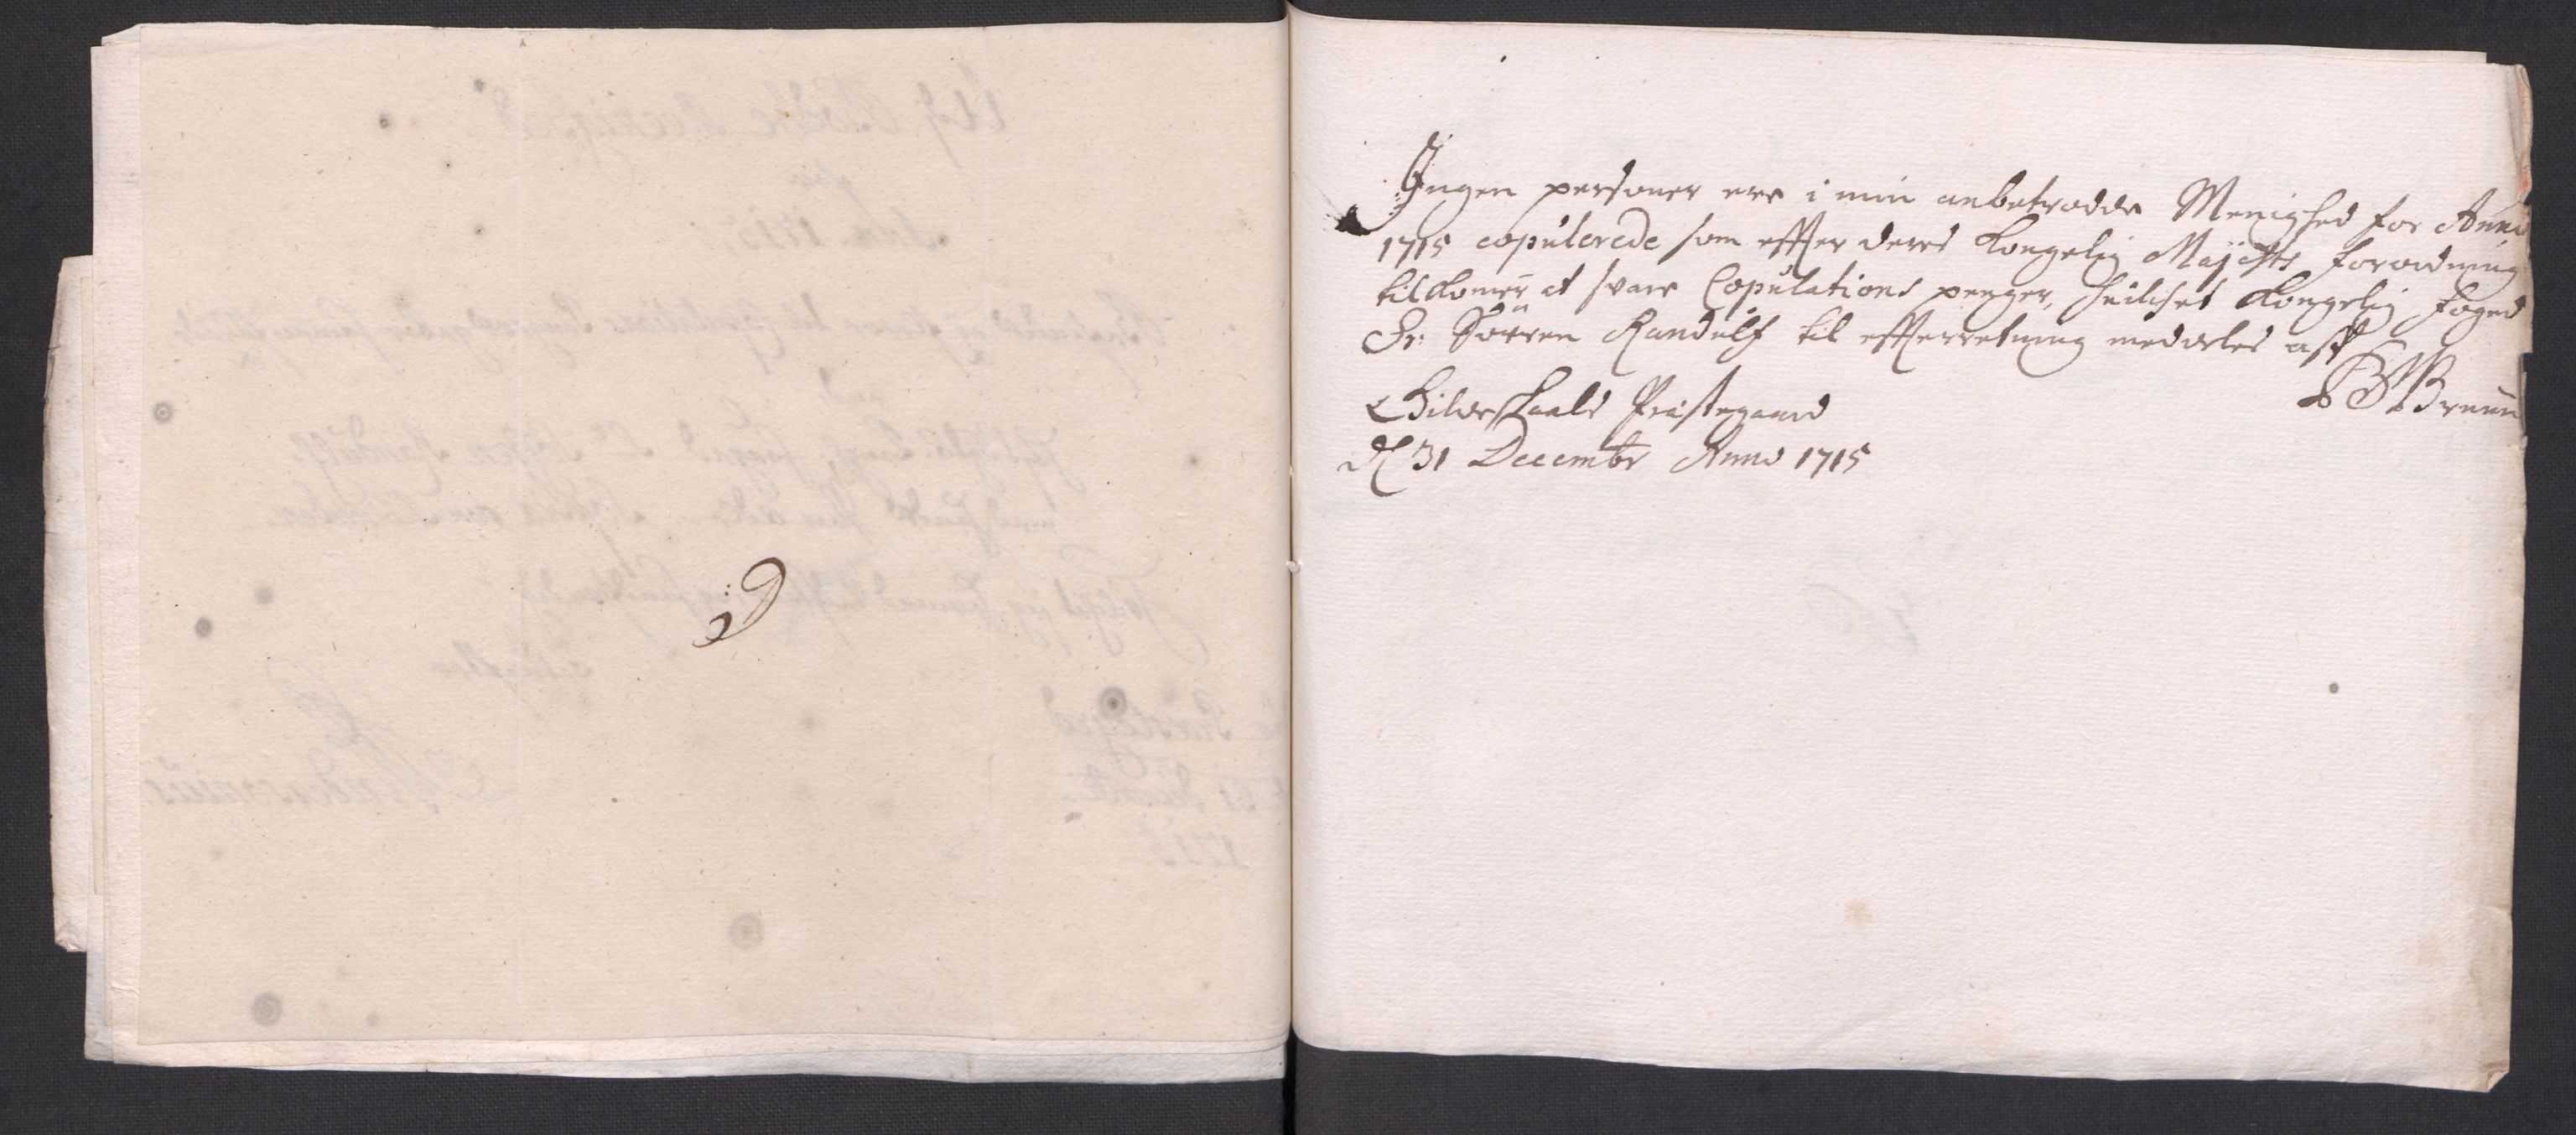 Ingen personer ere i min anbetrodde Menighed for Anno
1715 copulerede som effter deres Kongelig Majestts forordning
tilkomer at svare Copulations penger, huilchet Kongelig foged
Sr: Sörren Randulf til effterretning meddeles aff
Gilveskaals Præstegaard
d 31 Decembr Anno 1715
Bruun